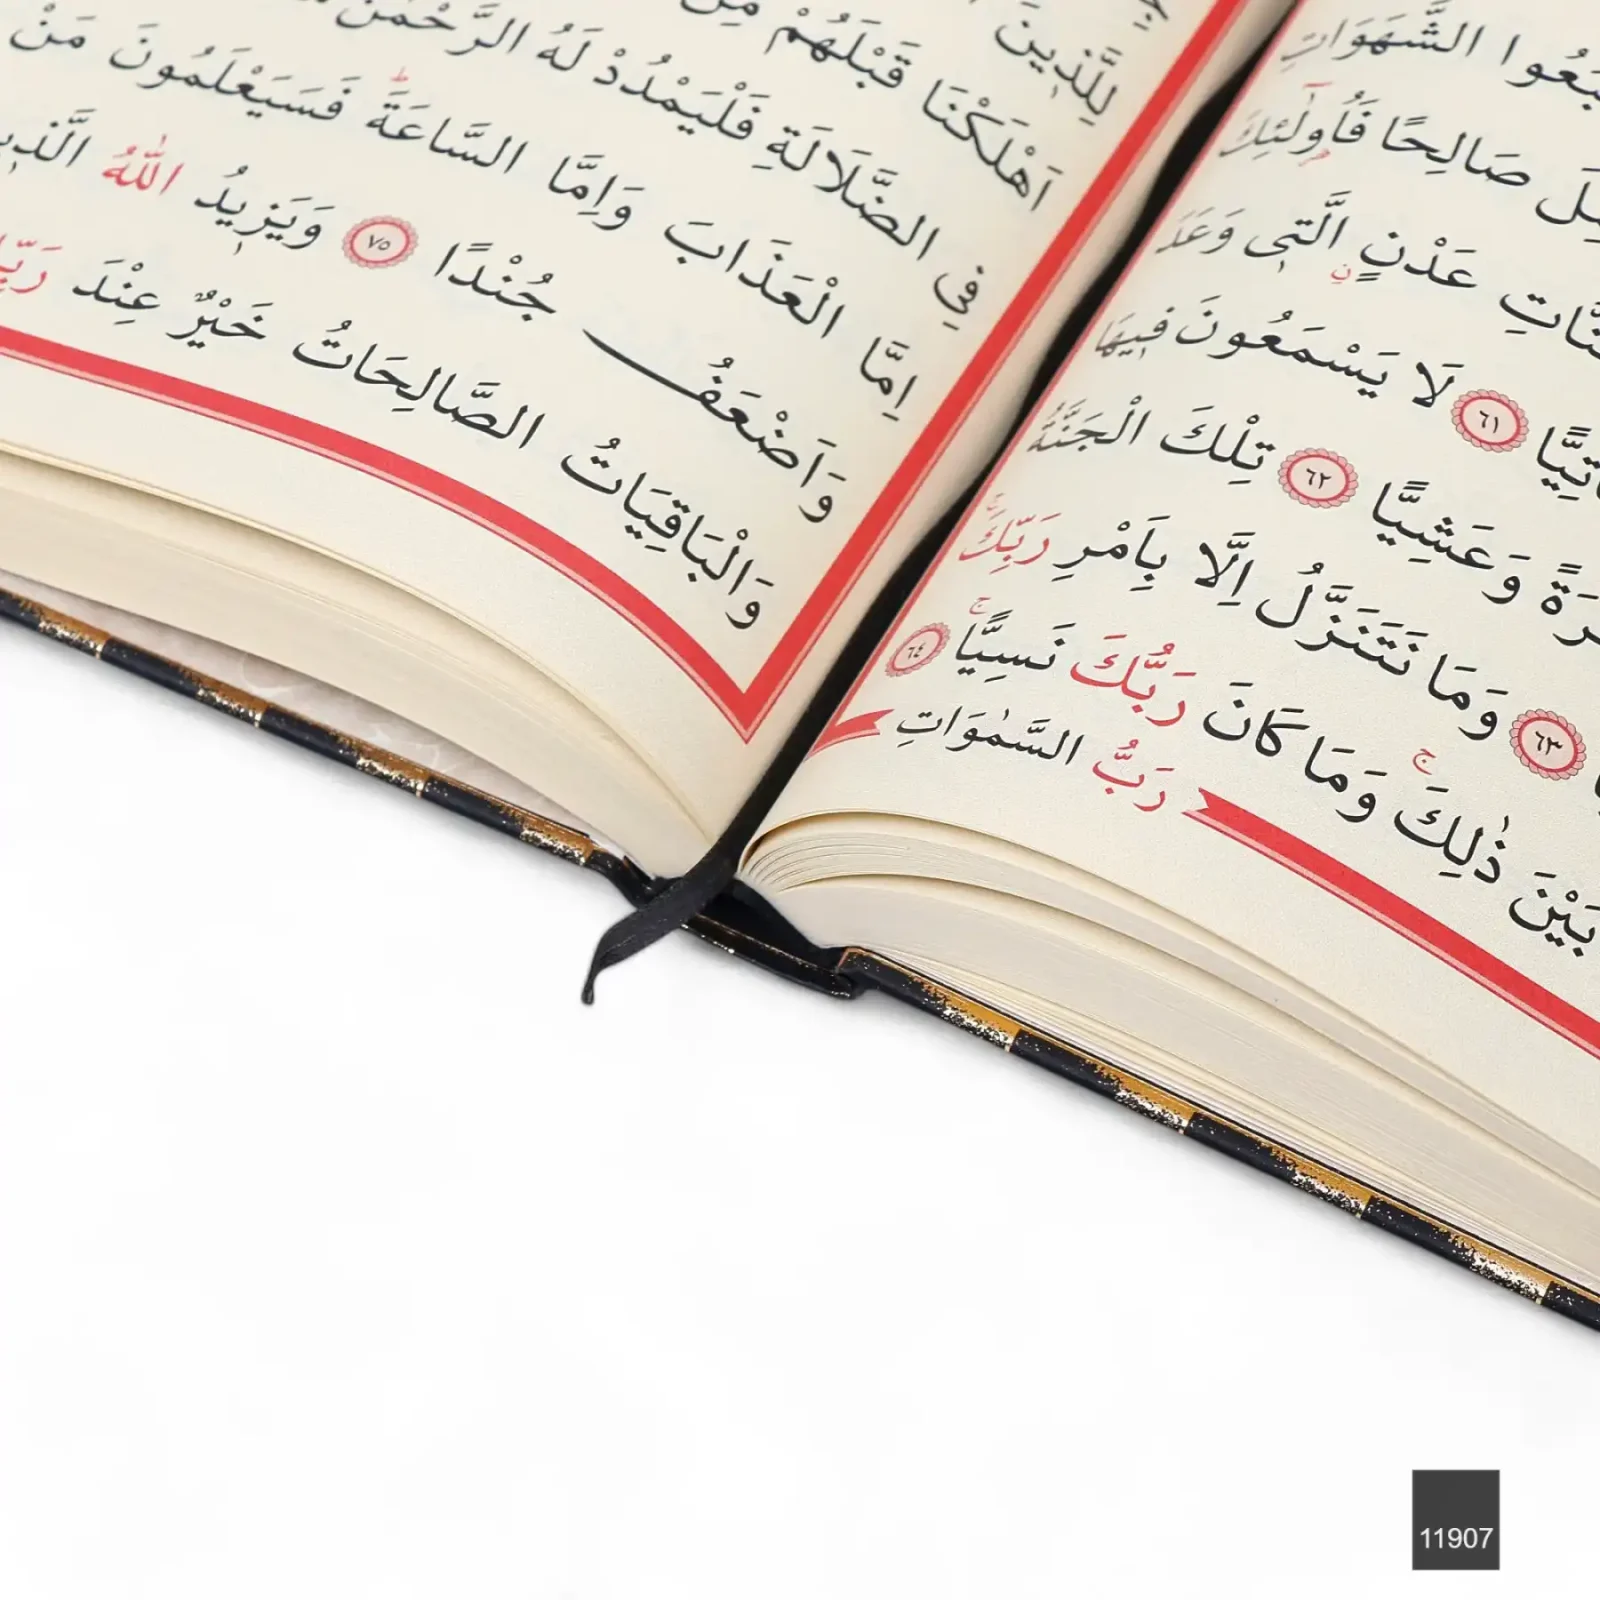 الشَّهَوَاتِ
صَالِحًا فَاُولٰٓئِكَ
عَدْنٍ الَّتٖى وَعَدَ
٦١ لَا يَسْمَعُونَ فٖيهَا
وَعَشِيًّا ٦٢ تِلْكَ الْجَنَّةُ
٦٣ وَمَا نَتَنَزَّلُ اِلَّا بِاَمْرِ رَبِّكَ
بَيْنَ ذٰلِكَ وَمَا كَانَ رَبُّكَ نَسِيًّا ٦٤
رَبُّ السَّمٰوَاتِ
لِلَّذٖينَ
اَهْلَكْنَا قَبْلَهُمْ مِنْ
فِي الضَّلَالَةِ فَلْيَمْدُدْ لَهُ الرَّحْمٰنُ
اِمَّا الْعَذَابَ وَاِمَّا السَّاعَةَ فَسَيَعْلَمُونَ مَنْ
وَاَضْعَفُ جُنْدًا ٧٥ وَيَزٖيدُ اللّٰهُ
وَالْبَاقِيَاتُ الصَّالِحَاتُ خَيْرٌ عِنْدَ
11907